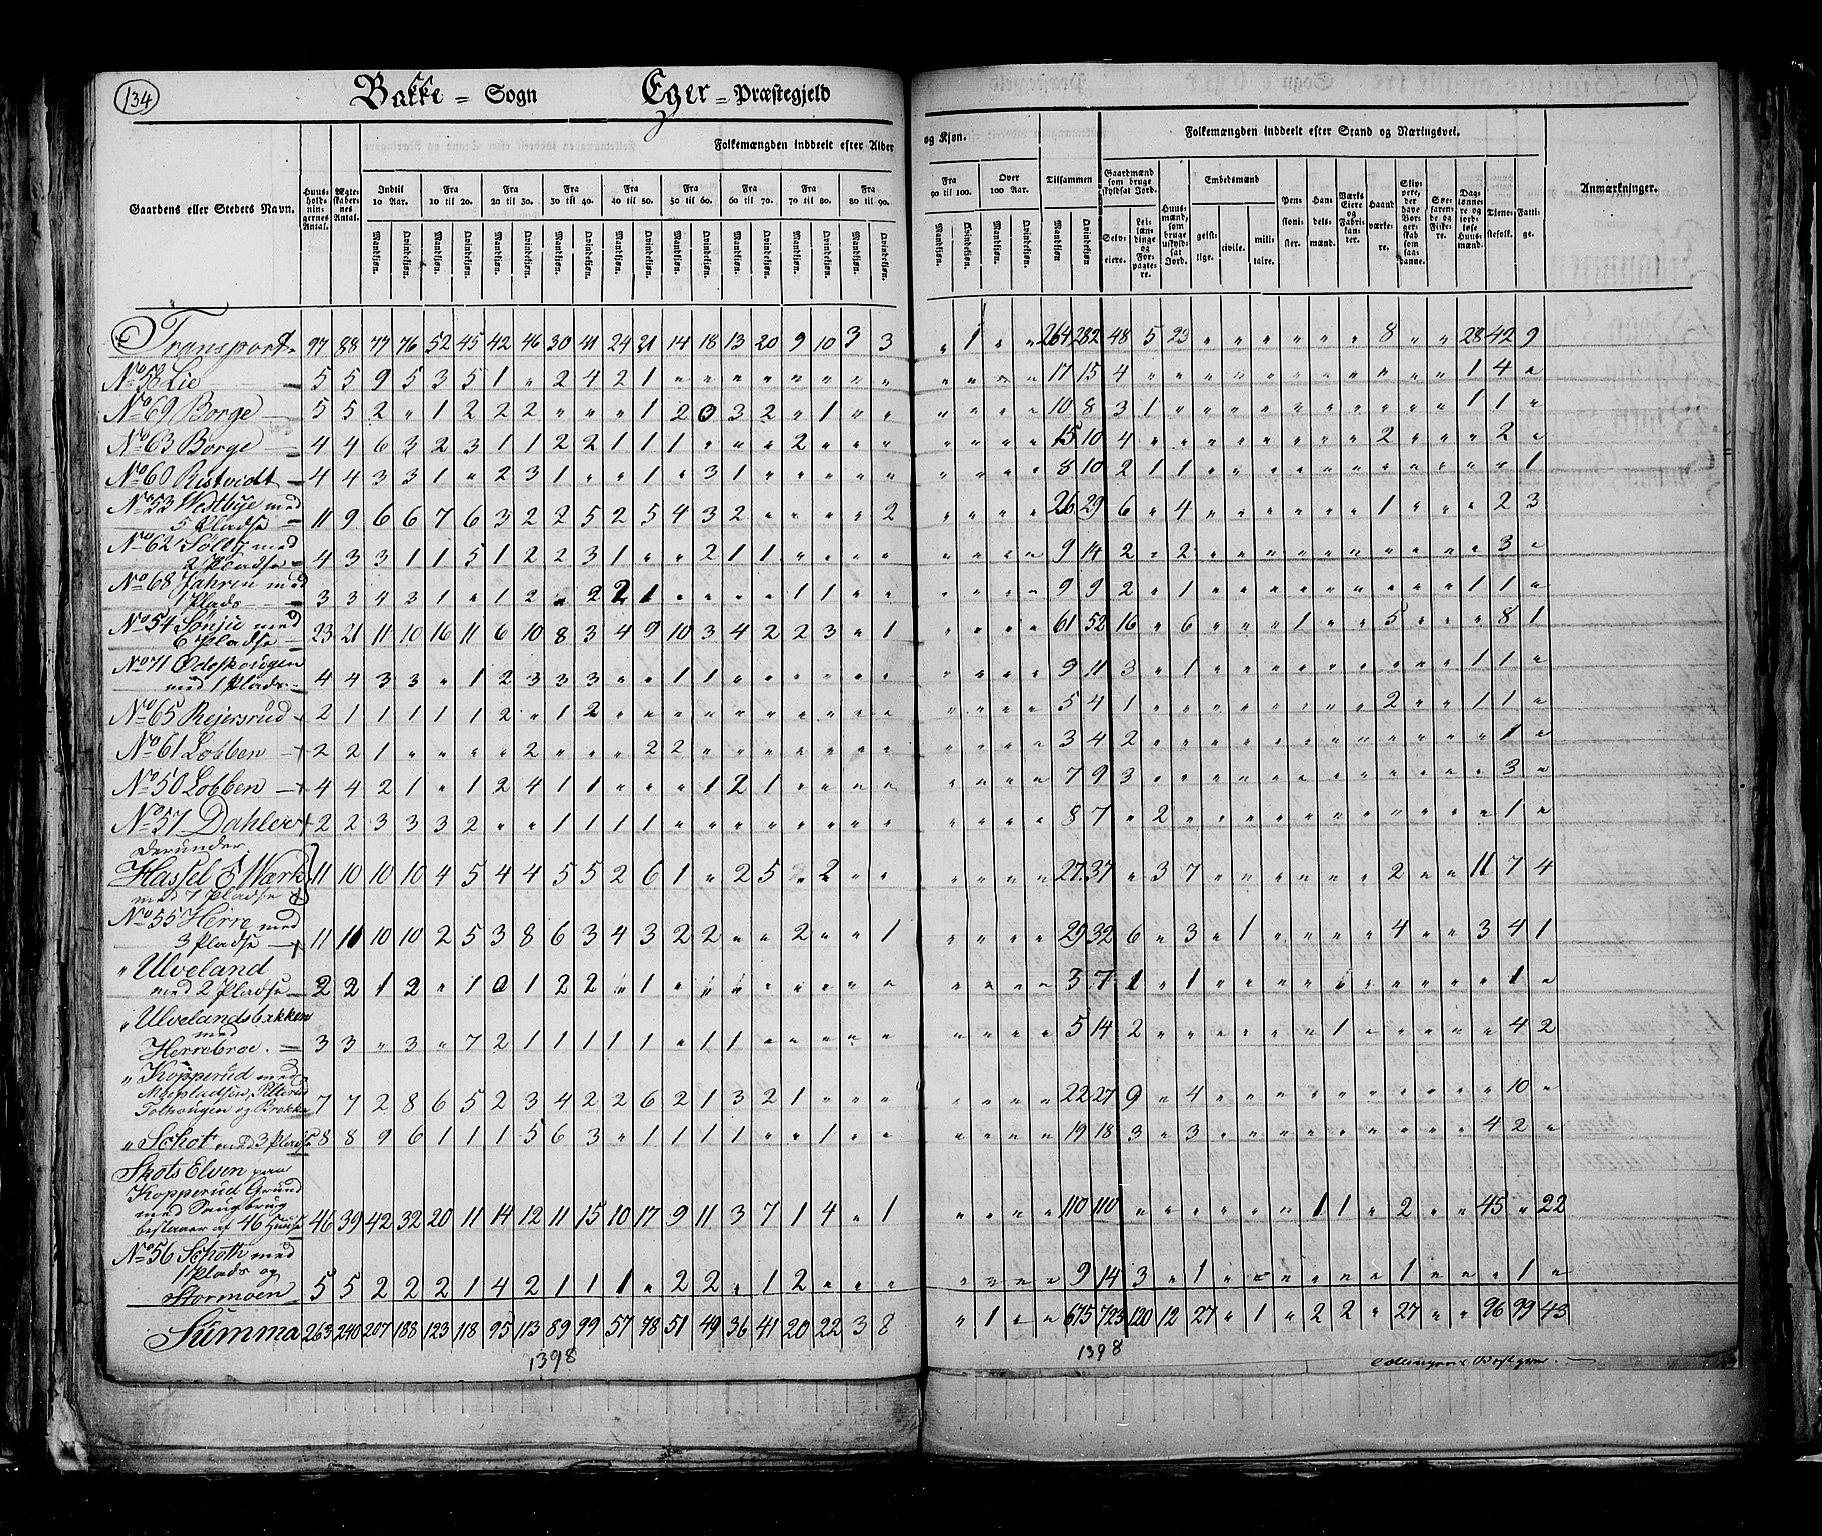 134
Bakke = Sogn Eger = Præstegjeld
Folkemængden inddeelt efter Alder og Kjøn.
Folkemængden inddeelt efter Stand og Næringsvei.
Gaardens eller Stedets Navn.
Huusholdningernes Antal.
Ægteskabernes Antal.
Indtil 10 Aar.
Fra 10 til 20.
Fra 20 til 30.
Fra 30 til 40.
Fra 40 til 50.
Fra 50 til 60.
Fra 60 til 70.
Fra 70 til 80.
Fra 80 til 90.
Fra 90 til 100.
Over 100 Aar.
Tilsammen
Mandkjøn. Qvindekjøn.
Gaardmænd som bruge skyldsat Jord.
Selveiere.
Leilændinge og Forpagtere.
Huusmænd, som bruge uskyldsat Jord.
Embedsmænd
geistlige.
civile.
militaire.
Pensionister.
Handelsmænd.
Værks Eiere og Fabrikanter.
Haandværkere.
Skippere, der have Borgerskab som saadanne.
Søefarende og Fiskere.
Dagslønnere og jordløse Huusmænd.
Tjenestefolk.
Fattige.
Anmærkninger.
Transport 97 88 77 76 52 45 42 46 30 41 24 21 14 18 13 20 9 10 3 3 „ 1 „ „ 264 282 48 5 23 „ „ „ „ „ „ 8 „ „ 28 42 9
No 58 Lie 5 5 9 5 3 5 1 „ 2 4 2 1 „ „ „ „ „ „ „ „ „ „ „ „ 17 15 4 „ „ „ „ „ „ „ „ „ „ „ 1 4 „
No 69 Borge 5 5 2 „ 1 2 2 2 „ „ „ 1 2 0 3 2 „ 1 „ „ „ „ „ „ 10 8 3 1 „ „ „ „ „ „ „ „ „ „ 1 1 „
No 63 Borge 4 4 6 3 2 3 1 1 2 2 1 1 1 „ „ „ 2 „ „ „ „ „ „ „ 15 10 4 „ „ „ „ „ „ „ „ 2 „ „ „ 2 „
No 60 Ristvedt 4 4 3 3 1 „ 2 3 1 „ „ 1 „ 3 1 „ „ „ „ „ „ „ „ „ 8 10 2 1 1 „ „ „ „ „ „ „ „ „ „ „ 1
No 53 Westbye med
5 Pladse 11 9 6 6 7 6 3 2 2 5 2 5 4 3 2 „ „ „ „ 2 „ „ „ „ 26 29 6 „ 4 „ „ „ „ „ „ 1 „ „ „ 2 3
No 62 Sølby med
2 Pladse 4 3 3 1 1 5 1 2 2 3 1 „ „ 2 1 1 „ „ „ „ „ „ „ „ 9 14 2 „ 2 „ „ „ „ „ „ „ „ „ „ 3 „
No 68 Jahren med
1 Plads 3 3 4 3 1 „ 1 2 „ 2 2 1 „ „ „ „ 1 1 „ „ „ „ „ „ 9 9 2 „ 1 „ „ „ „ „ „ „ „ „ 1 1 „
No 54 Sønju med
6 Pladse 23 21 11 10 16 11 6 10 8 3 4 9 10 3 4 2 2 3 „ 1 „ „ „ „ 61 52 16 „ 6 „ „ „ 1 „ „ 5 „ „ „ 8 1
No 71 Ødeskougen
med 1 Plads 4 4 3 3 „ 1 2 3 3 3 „ „ 1 1 „ „ „ „ „ „ „ „ „ „ 9 11 3 „ 1 „ „ „ „ „ „ „ „ „ 1 1 „
No 65 Rejersrud 2 1 1 1 1 1 2 „ 1 2 „ „ „ „ „ „ „ „ „ „ „ „ „ „ 5 4 1 „ „ „ „ „ „ „ „ 2 „ „ 1 1 „
No 61 Lobben 2 2 1 „ „ „ „ 2 „ „ „ 2 2 „ „ „ „ „ „ „ „ „ „ „ 3 4 2 „ „ „ „ „ „ „ „ „ „ „ „ 1 „
No 50 Lobben 4 4 2 1 „ 1 2 4 1 1 „ „ „ 1 2 1 „ „ „ „ „ „ „ „ 7 9 3 „ „ „ „ „ „ „ „ „ „ „ „ 3 „
No 57 Dahler 2 2 3 3 3 2 „ „ 1 1 1 1 „ „ „ „ „ „ „ „ „ „ „ „ 8 7 „ 2 „ „ „ „ „ „ „ „ „ „ „ 1 „
derunder
Hassel J Wærk
med 7 Pladse 11 10 10 10 4 5 4 4 5 5 2 6 1 „ 2 5 „ 2 „ „ „ „ „ „ 27 37 „ 3 7 „ „ „ „ „ „ 2 „ „ 11 7 4
No 55 Herre med
3 Pladse 11 11 10 10 2 5 3 8 6 3 4 3 2 2 „ „ 2 „ „ 1 „ „ „ „ 29 32 6 „ 3 „ 1 „ „ „ „ 4 „ „ 3 4 1
„ Ulveland
med 2 Pladse 2 2 1 2 „ 1 0 1 2 2 „ 1 „ „ „ „ „ „ „ „ „ „ „ „ 3 7 1 „ 1 „ „ „ „ „ „ „ „ „ „ 1 „
„ Ulvelandsbakken
med
Herrebroe 3 3 „ 3 „ 7 2 1 1 1 1 1 „ 1 1 „ „ „ „ „ „ „ „ „ 5 14 2 „ „ „ „ „ „ „ 1 „ „ „ „ 4 2
„ Kopperud med
Moepladsen, Pitterud
Tolhougen og Brekke 7 7 2 8 6 5 2 3 4 2 2 6 2 1 3 2 1 „ „ „ „ „ „ „ 22 27 9 „ 4 „ „ „ „ „ „ „ „ „ „ 10 „
„ Schot med 3 Pladse 8 8 9 6 1 1 1 5 6 3 „ 1 1 1 1 „ „ 1 „ „ „ „ „ „ 19 18 3 „ 3 „ „ „ „ „ „ „ „ „ 4 2 „
Skots Elven paa
Kopperud Grund
med Saugbrug
bestaaer af 46 Huuse 46 39 42 32 20 11 14 12 11 15 10 17 9 11 3 7 1 4 „ 1 „ „ „ „ 110 110 „ „ „ „ „ „ „ 1 1 „ 2 „ „ 45 „ 22
No 56 Schoth med
1 Plads og
Stormoen 5 5 2 2 2 1 4 2 1 1 1 „ 2 2 „ 1 2 „ „ „ „ „ „ „ 9 14 3 „ 1 „ „ „ „ „ „ 1 „ „ „ 1 „
Summa 263 240 207 188 123 118 95 113 89 99 57 78 51 49 36 41 20 22 3 8 „ 1 „ „ 675 723 120 12 27 „ 1 „ 2 2 „ 27 „ „ 96 99 43
1398 1398